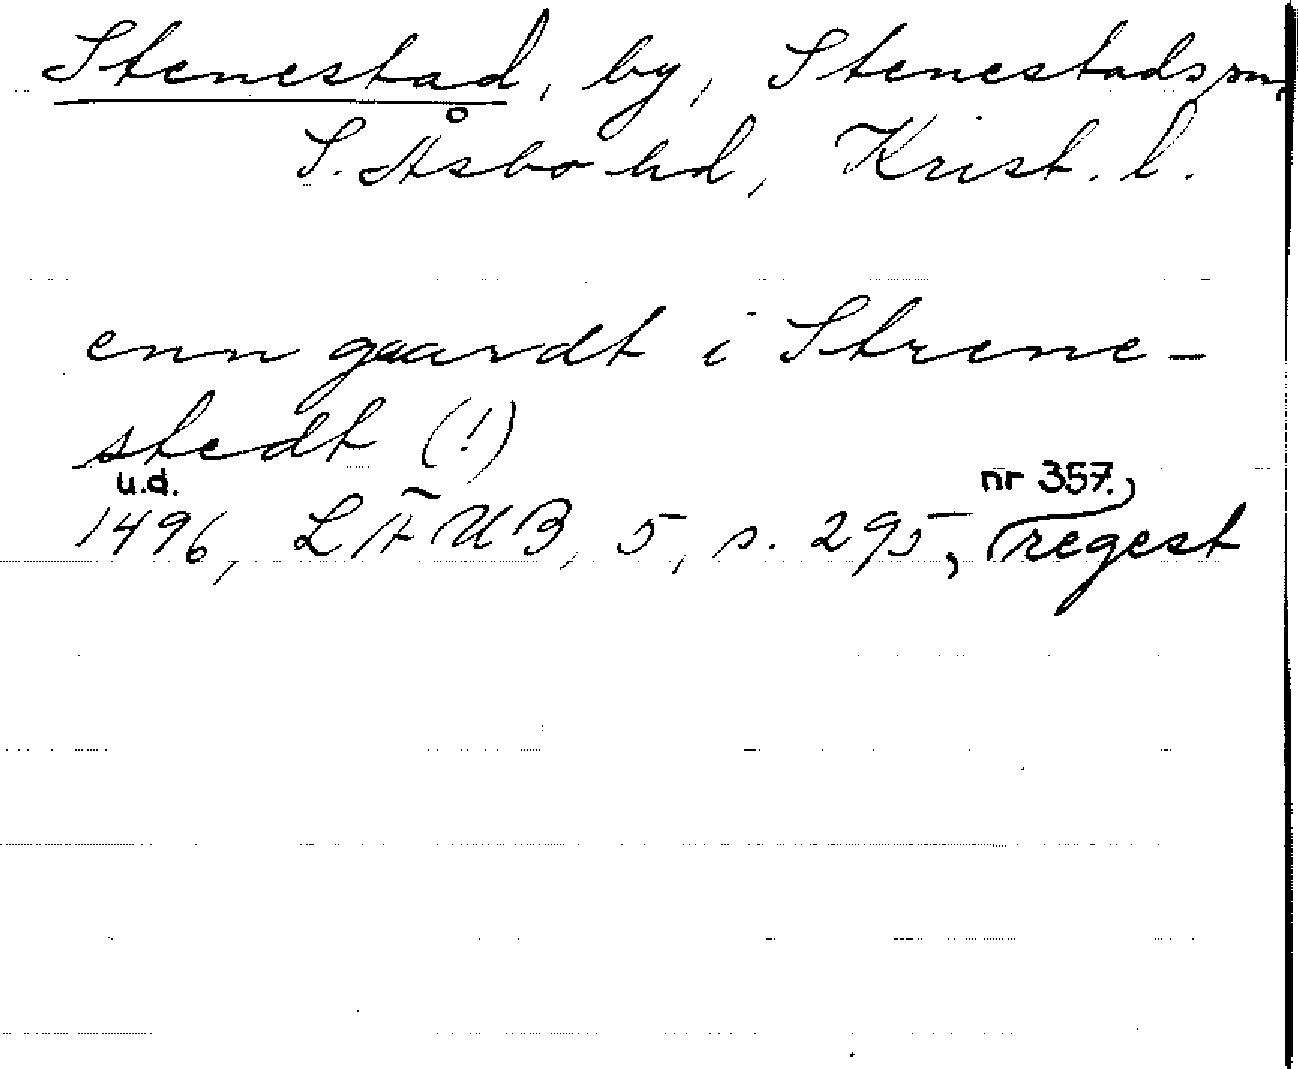 Stenestad, by, Stenestads sn,
S. Åsbo hd, Krist. l.
enn gaardt i Strene-
stedt (!)
u.d. nr 357.
1496, LÄUB, 5, s. 295, regest